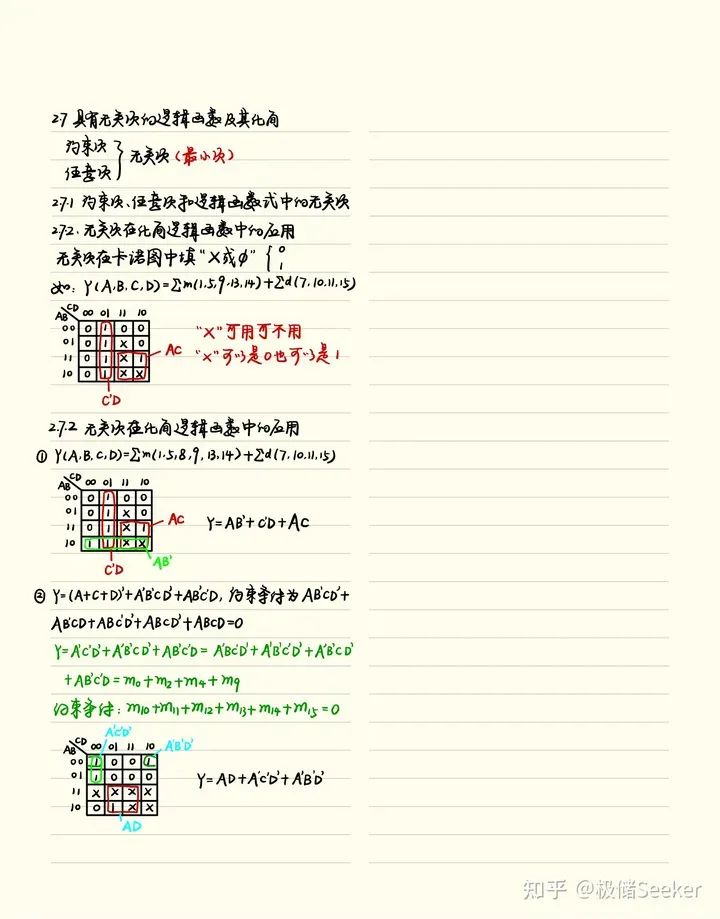 2.7 具有无关项的逻辑函数及其化简
约束项
任意项
无关项 (最小项)
2.7.1 约束项、任意项和逻辑函数式中的无关项
2.7.2. 无关项在化简逻辑函数中的应用
无关项在卡诺图中填“X或ϕ” { 0 1
如: Y(A,B,C,D)=Σm(1,5,9,13,14)+Σd(7,10,11,15)
CD 00 01 11 10
AB
00 0 1 0 0
01 0 1 X 0
11 0 1 X 1
10 0 1 X X
AC
C'D
“X”可用可不用
“X”可以是0也可以是1
2.7.2 无关项在化简逻辑函数中的应用
① Y(A,B,C,D)=Σm(1,5,8,9,13,14)+Σd(7,10,11,15)
CD 00 01 11 10
AB
00 0 1 0 0
01 0 1 X 0
11 0 1 X 1
10 1 1 X X
AC
AB'
C'D
Y=AB'+C'D+AC
② Y=(A+C+D)'+A'B'CD'+AB'C'D, 约束条件为 AB'CD'+
AB'CD+ABC'D'+ABCD'+ABCD=0
Y=A'C'D'+A'B'CD'+AB'C'D=A'BC'D'+A'B'C'D'+A'B'CD'
+AB'C'D=m0+m2+m4+m9
约束条件: m10+m11+m12+m13+m14+m15=0
A'C'D'
CD 00 01 11 10
A'B'D'
AB
00 1 0 0 1
01 1 0 0 0
11 X X X X
10 0 1 X X
AD
Y=AD+A'C'D'+A'B'D'
知乎 @极储Seeker